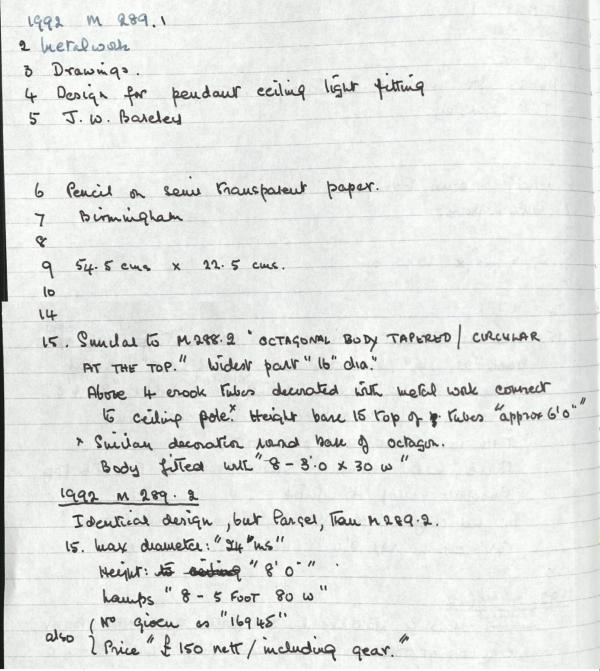 1992 M 289.1
2 Metalwork
3 Drawings.
4 Design for pendant ceiling light fitting
5 J. W. Baseley
6 Pencil on semi transparent paper.
7 Birmingham
8
9 54.5 cms x 22.5 cms.
10
14
15. Similar to M288.2 "OCTAGONAL BODY TAPERED / CIRCULAR
AT THE TOP." Widest part "16" dia."
Above 4 crook tubes decorated with metal work connect
to ceiling pole.* Height base to top of tubes "approx 6'0""
* Similar decoration round base of octagon.
Body fitted with "8 - 3'.0 x 30 w"
1992 M 289.2
Identical design, but larger, than M289.2.
15. Max diameter: "24" ins"
Height: "8' 0""
Lamps "8 - 5 FOOT 80 w"
also { No given as "16945"
Price "£150 nett / including gear."